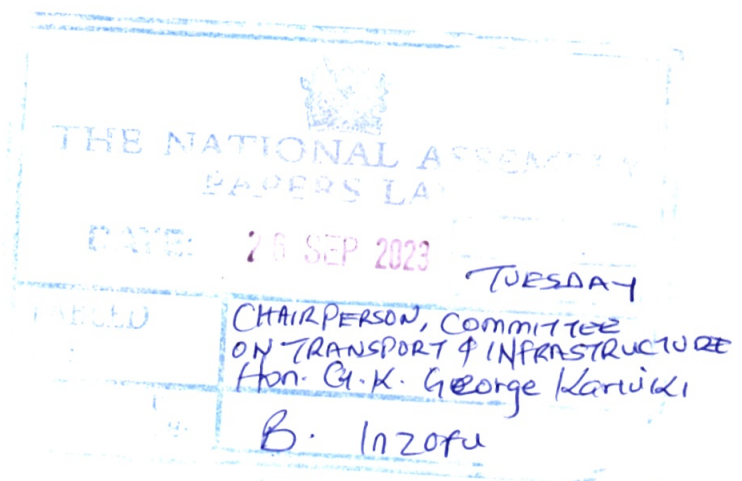 THE NATIONAL ASSEMBLY
PAPERS LAID
DATE: 26 SEP 2023
TUESDAY
TABLED
CHAIRPERSON, COMMITTEE
ON TRANSPORT & INFRASTRUCTURE
Hon. G.K. George Kariuki
B. Inzofu